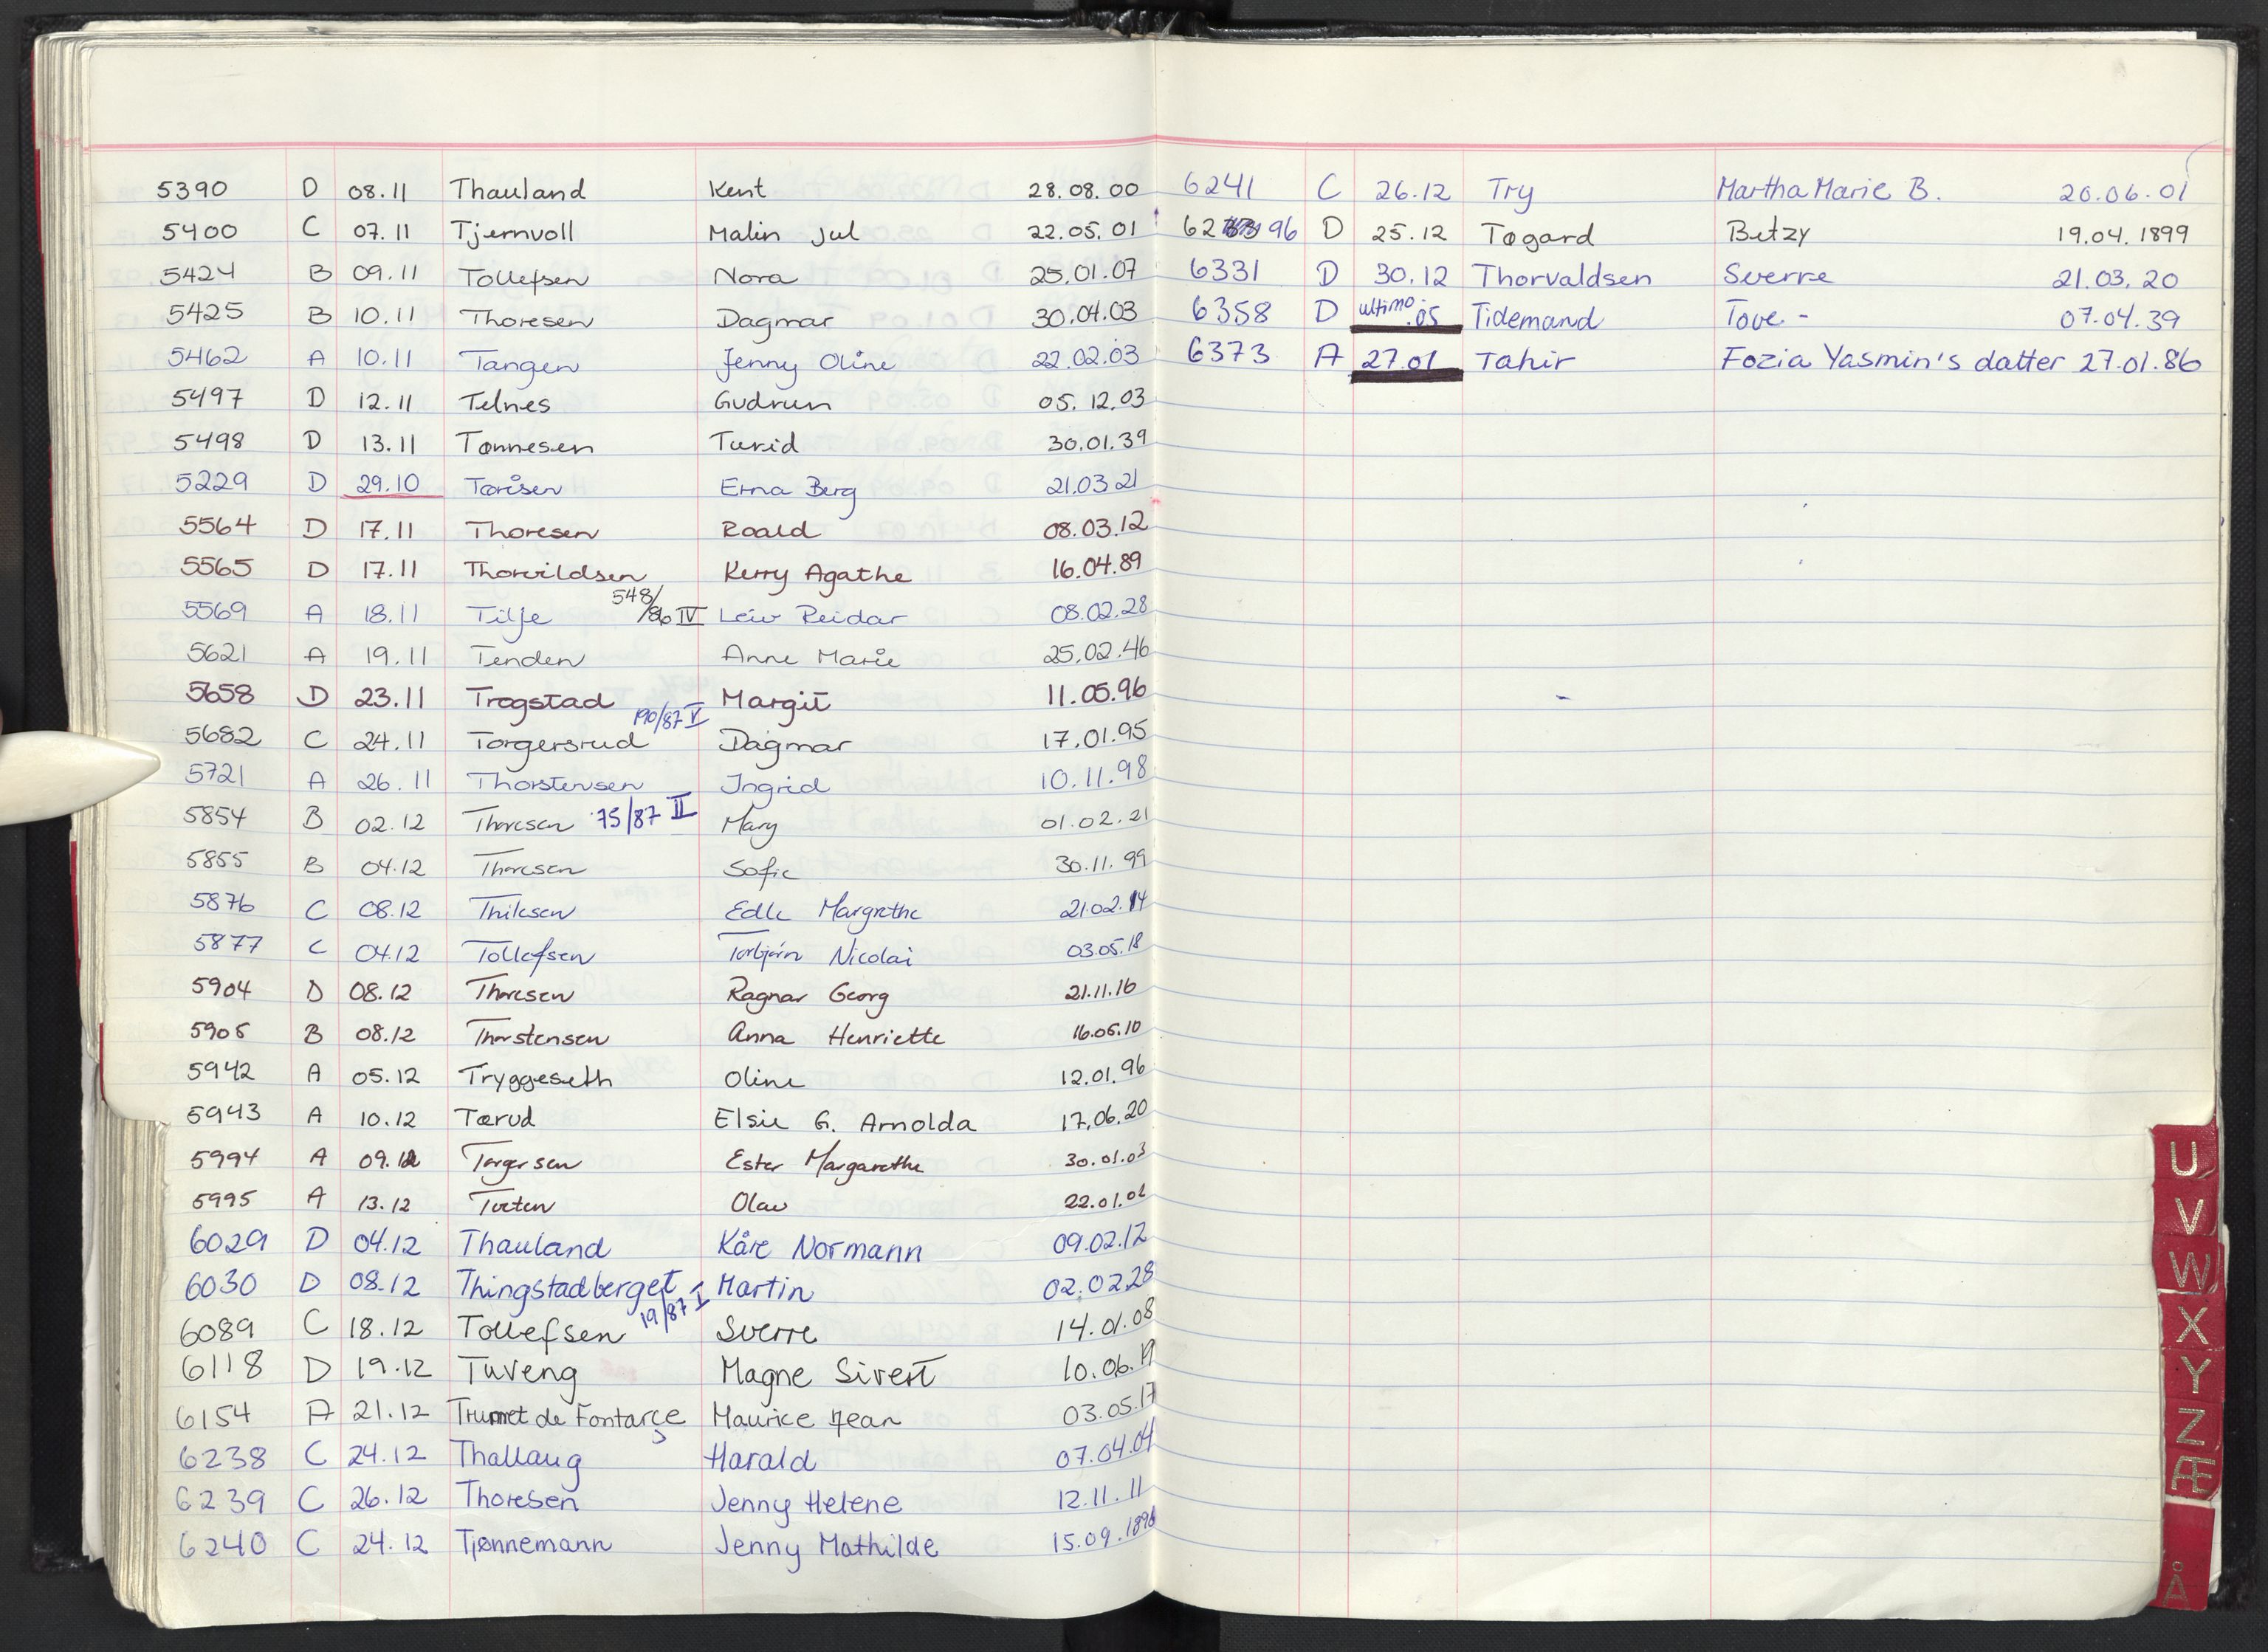 5390 D 08.11 Thauland Kent 28.08.00
5400 C 07.11 Tjernvoll Malin Jul 22.05.01
5424 B 09.11 Tollefsen Nora 25.01.07
5425 B 10.11 Thoresen Dagmar 30.04.03
5462 A 10.11 Tangen Jenny Oline 22.02.03
5497 D 12.11 Telnes Gudrun 05.12.03
5498 D 13.11 Tønnesen Turid 30.01.39
5229 D 29.10 Toråsen Erna Berg 21.03 21
5564 D 17.11 Thoresen Roald 08.03.12
5565 D 17.11 Thorvildsen Kerry Agathe 16.04.89
5569 A 18.11 Tilje 548/86 IV Leiv Reidar 08.02.28
5621 A 19.11 Tenden Anne Marie 25.02.46
5658 D 23.11 Trøgstad Margit 11.05.96
5682 C 24.11 Torgersrud 190/87 V Dagmar 17.01.95
5721 A 26.11 Thorstensen Ingrid 10.11.98
5854 B 02.12 Thoresen 75/87 II Mary 01.02.21
5855 B 04.12 Thoresen Sofie 30.11.99
5876 C 08.12 Thilesen Edle Margrethe 21.02.14
5877 C 04.12 Tollefsen Torbjørn Nicolai 03.05.18
5904 D 08.12 Thoresen Ragnar Georg 21.11.16
5905 B 08.12 Thorstensen Anna Henriette 16.05.10
5942 A 05.12 Tryggeseth Oline 12.01.96
5943 A 10.12 Tærud Elsie G. Arnolda 17.06.20
5994 A 09.12 Torgersen Ester Margarethe 30.01.03
5995 A 13.12 Tveten Olav 22.01.02
6029 D 04.12 Thauland Kåre Normann 09.02.12
6030 D 08.12 Thingstadberget Martin 02.02 28
6089 C 18.12 Tollefsen 19/87 I Sverre 14.01.08
6118 D 19.12 Tuveng Magne Sivert 10.06.19
6154 A 21.12 de Maurice Jean 03.05.17
6238 C 24.12 Thallaug Harald 07.04.04
6239 C 26.12 Thoresen Jenny Helene 12.11.11
6240 C 24.12 Tjønnemann Jenny Mathilde 15.09.1896
6241 C 26.12 Try Martha Marie B. 20.06.01
62 96 D 25.12 Tøgard Betzy 19.04.1899
6331 D 30.12 Thorvaldsen Sverre 21.03.20
6358 D ultimo .05 Tidemand Tove - 07.04.39
6373 A 27.01 Tahir Fozia Yasmin's datter 27.01.86
U
V
W
X
Y
Z
Æ
Å